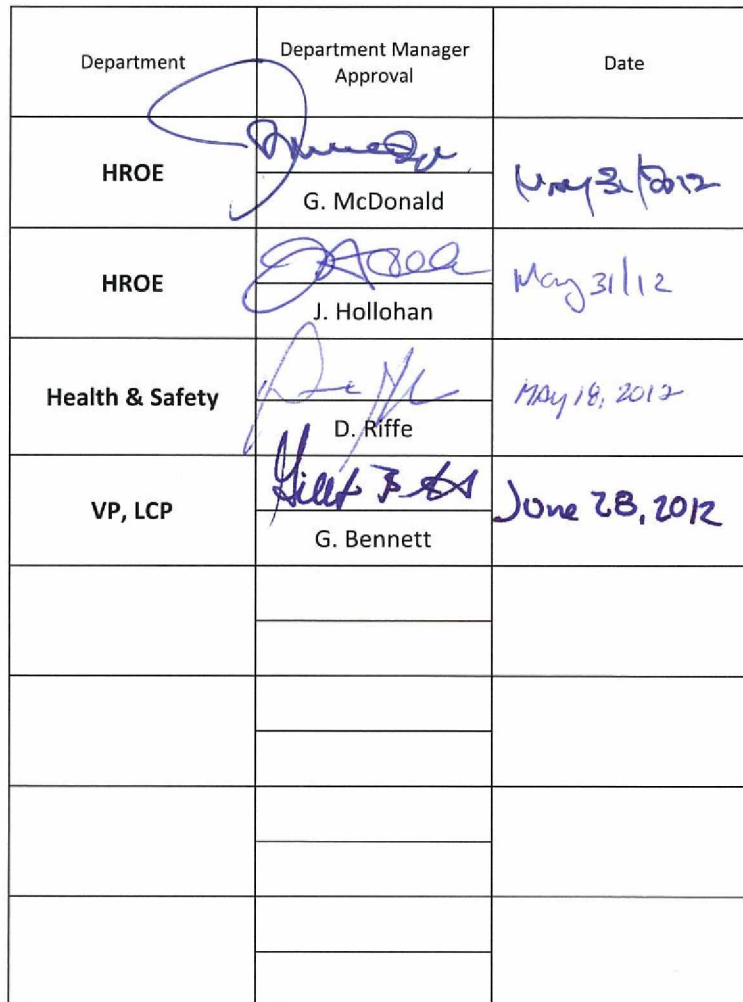 Department
Department Manager
Approval
Date
HROE
G. McDonald
May 31/2012
HROE
J. Hollohan
May 31/12
Health & Safety
D. Riffe
MAY 18, 2012
VP, LCP
G. Bennett
June 28, 2012